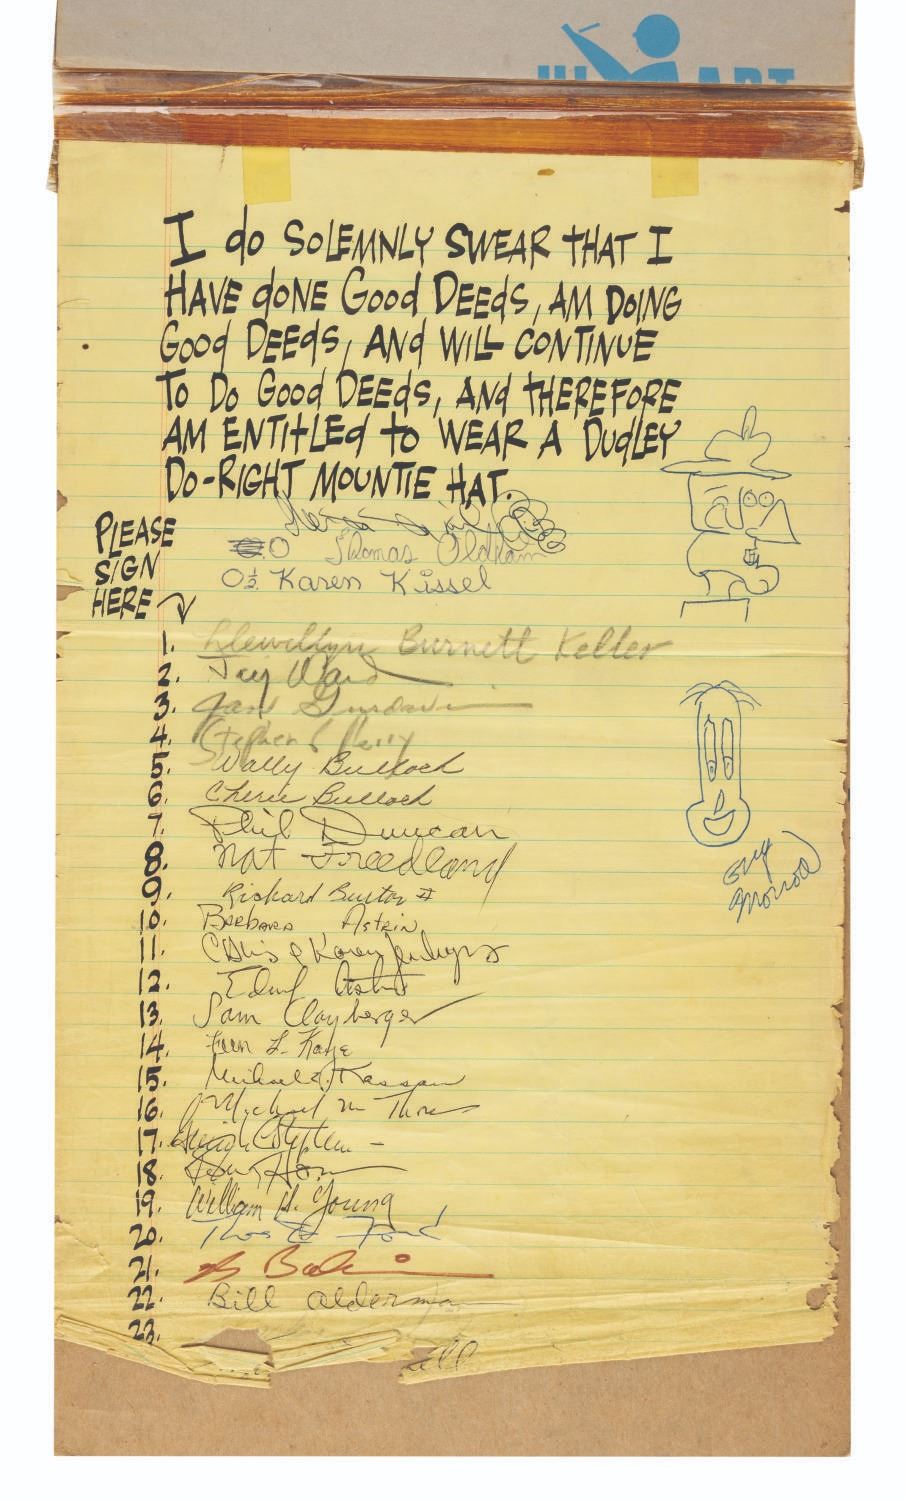 ART
I do SOLEMNLY SWEAR THAT I
HAVE dONE Good DEEdS, AM DOING
Good DEEdS, ANd WILL CONTINUE
To Do Good DEEdS, ANd THEREFORE
AM ENTITLEd to WEAR A DUdLEY
Do-RIGHT MOUNTIE HAT.
PLEASE
SIGN
HERE
0 Thomas Oldham
0½ Karen Kissel
1. Llewellyn Burnett Keller
2. Jay Ward
3.
4. Stephen
5. Wally Bullock
6. Cherie Bullock
7. Phil Duncan
8. Nat Freedland
9. Richard Burton II
10. Barbara Astrin
11. & Karen
12.
13. Sam Clayberger
14. L. Kaye
15. Michael
16. Michael M
17.
18.
19. William H. Young
20. Thos Ford
21.
22. Bill Alderman
23.
Guy